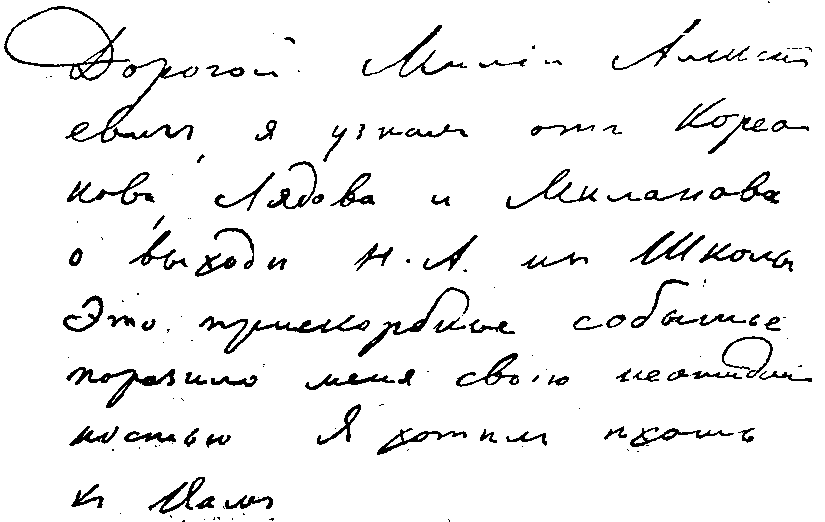 Дорогой Милій Алексѣ
евичъ, я узналъ отъ Корса
кова, Лядова и Миланова
о выходѣ Н. А. изъ Школы
Это прискорбное событіе
поразило меня своею неожидан
ностью Я хотѣлъ ѣхать
къ Вамъ